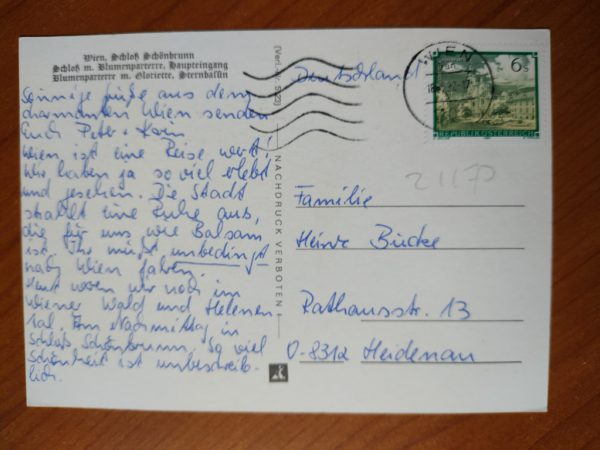 Wien, Schloß Schönbrunn
Schloß m. Blumenparterre, Haupteingang
Blumenparterre m. Gloriette, Sternbassin
Sonnige Grüße aus dem
charmanten Wien senden
Euch Peter + Karin
Wien ist eine Reise wert!
Wir haben ja so viel erlebt
und gesehen. Die Stadt
strahlt eine Ruhe aus,
die für uns wie Balsam
ist. Ihr müßt unbedingt
nach Wien fahren.
Heut waren wir noch im
Wiener Wald und Helenen-
tal. Am Nachmittag in
Schloß Schönbrunn. So viel
Schönheit ist unbeschreib-
lich.
NACHDRUCK VERBOTEN
Deutschland
WIEN
6 S
REPUBLIK ÖSTERREICH
Familie
Heinz
Rathausstr. 13
O-8312 Heidenau